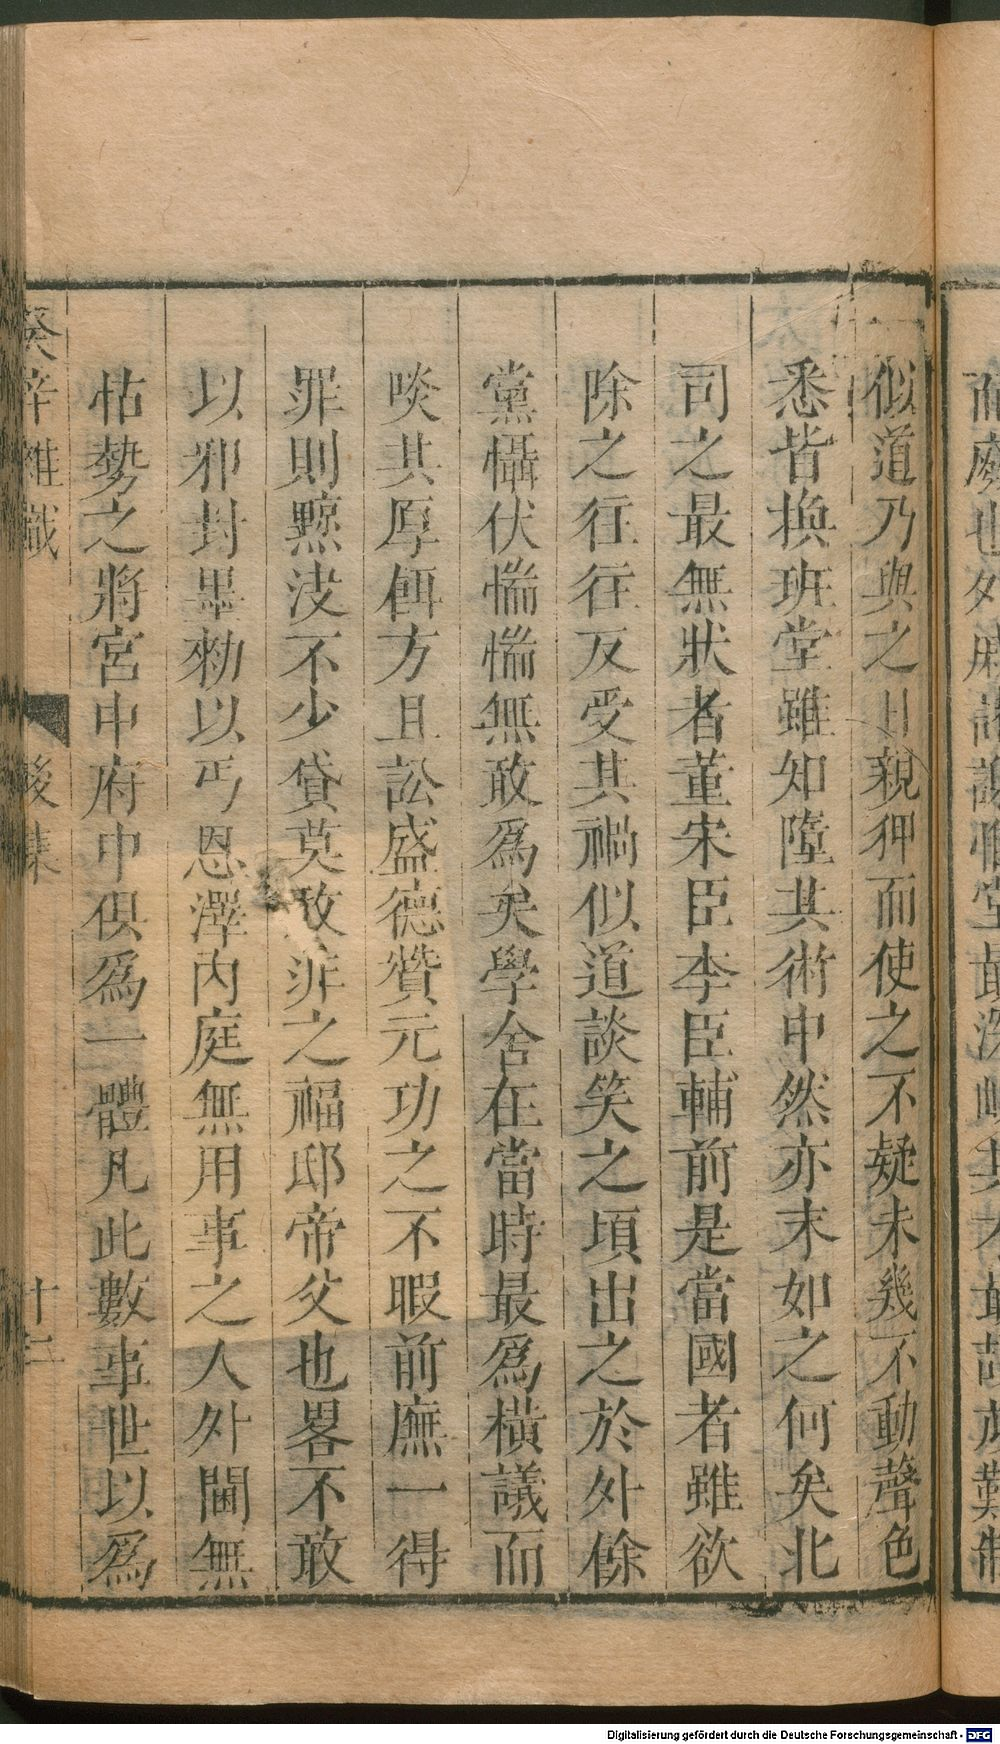 似道乃與之日親狎而使之不疑未幾不動聲色
悉皆換班堂雖知墮其術中然亦末如之何矣北
司之最無狀者董宋臣李臣輔前是當國者雖欲
除之往往反受其禍似道談笑之頃出之於外餘
黨懾伏惴惴無敢爲矣學舍在當時最爲橫議而
啖其厚餌方且訟盛德贊元功之不暇前廡一得
罪則黥決不少貸莫敢非之福邸帝父也畧不敢
以邪封墨勑以丐恩澤內庭無用事之人外閫無
怙勢之將宮中府中俱爲一體凡此數事世以爲
癸辛雜識
後集
十二
Digitalisierung gefördert durch die Deutsche Forschungsgemeinschaft - DFG